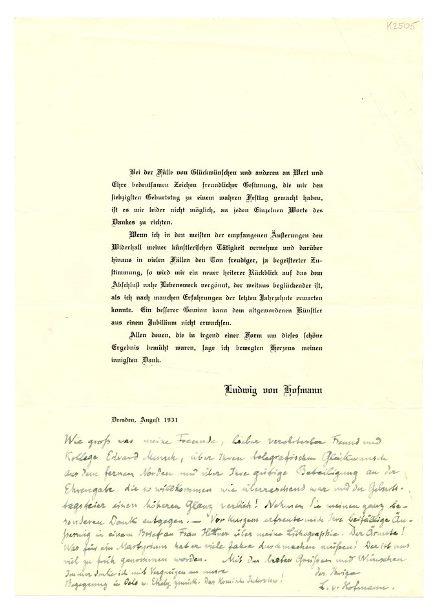 K2505
Bei der Fülle von Glückwünschen und anderen an Wert und
Ehre bedeutsamen Zeichen freundlicher Gesinnung, die mir den
siebzigsten Geburtstag zu einem wahren Festtag gemacht haben,
ist es mir leider nicht möglich, an jeden Einzelnen Worte des
Dankes zu richten.
Wenn ich in den meisten der empfangenen Äußerungen den
Widerhall meiner künstlerischen Tätigkeit vernehme und darüber
hinaus in vielen Fällen den Ton freudiger, ja begeisterter Zu-
stimmung, so wird mir ein neuer heiterer Rückblick auf das dem
Abschluß nahe Lebenswerk vergönnt, der weitaus beglückender ist,
als ich nach manchen Erfahrungen der letzten Jahrzehnte erwarten
konnte. Ein besserer Gewinn kann dem altgewordenen Künstler
aus einem Jubiläum nicht erwachsen.
Allen denen, die in irgend einer Form um dieses schöne
Ergebnis bemüht waren, sage ich bewegten Herzens meinen
innigsten Dank.
Ludwig von Hofmann
Dresden, August 1931
Wie groß was meine Freude, lieber verehrtester Freund und
Kollege Edvard Munch, über Ihren telegrafischen Glückwunsch
aus dem fernen Norden und über Ihre gütige Beteiligung an der
Ehrengabe die so willkommen wie überraschend war und der Geburts-
tagsfeier einen höheren Glanz verlieh! Nehmen Sie meinen ganz be-
sonderen Dank entgegen. — Vor kurzem erfreute mich Ihre
in einem Brief an Frau über meine Lithographie. Der Ärmste!
Was für ein Martyrium hat er viele Jahre durchmachen müssen! Der ist uns
viel zu früh genommen worden. Mit den Grüßen und Wünschen
denke ich mit Vergnügen an unsere
Begegnung in Oslo u. Ekely zurück. Das Interview!
L. v. Hofmann.